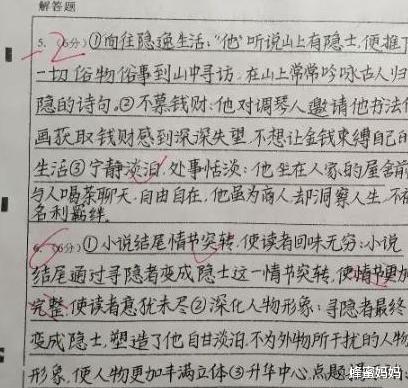 解答题
5. (6分)①向往隐逸生活:"他"听说山上有隐士,便推了
-2
一切俗物俗事到山中寻访,在山上常常吟咏古人归
隐的诗句。②不慕钱财:他对调琴人邀请他书法作
画获取钱财感到深深失望,不想让金钱束缚自己的
生活③宁静淡泊,处事恬淡:他坐在人家的屋舍前
与人喝茶聊天,自由自在,他虽为商人却洞察人生,不被
名利羁绊
6. (6分)①小说结尾情节突转,使读者回味无穷:小说
6
结尾通过寻隐者变成隐士这一情节突转,使情节更加
完整,使读者意犹未尽②深化人物形象:寻隐者最终
变成隐士,塑造了他自甘淡泊,不为外物所干扰的人物
形象,使人物更加丰满立体③升华中心点题
蜂蜜妈妈